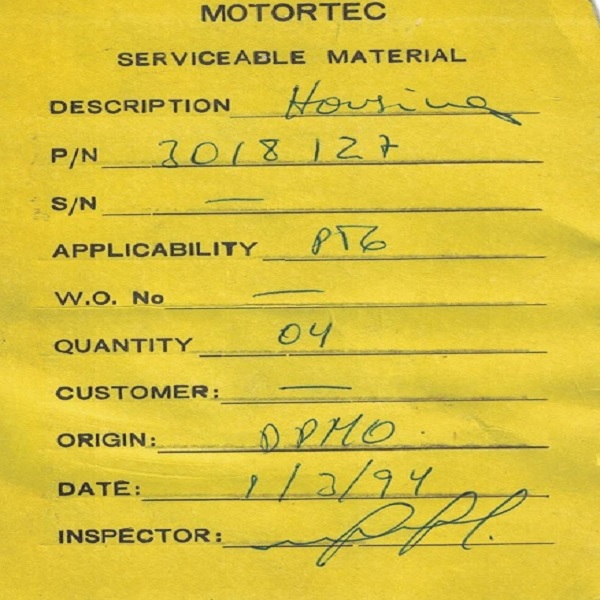 MOTORTEC
SERVICEABLE MATERIAL
DESCRIPTION Housing
P/N 3018127
S/N —
APPLICABILITY PT6
W.O. No —
QUANTITY 04
CUSTOMER: —
ORIGIN: DPMO
DATE: 1/3/94
INSPECTOR: